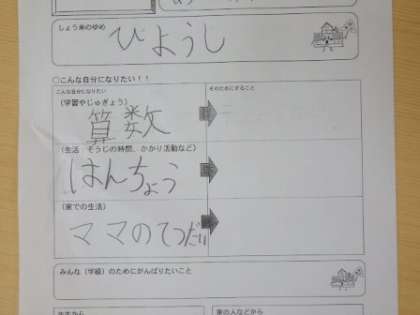 しょう来のゆめ
びようし
○こんな自分になりたい！！
こんな自分になりたい
そのためにすること
(学習やじゅぎょう)
算数
(生活 そうじの時間、かかり活動など)
はんちょう
(家での生活)
ママのてつだい
みんな(学級)のためにがんばりたいこと
先生から
家の人などから